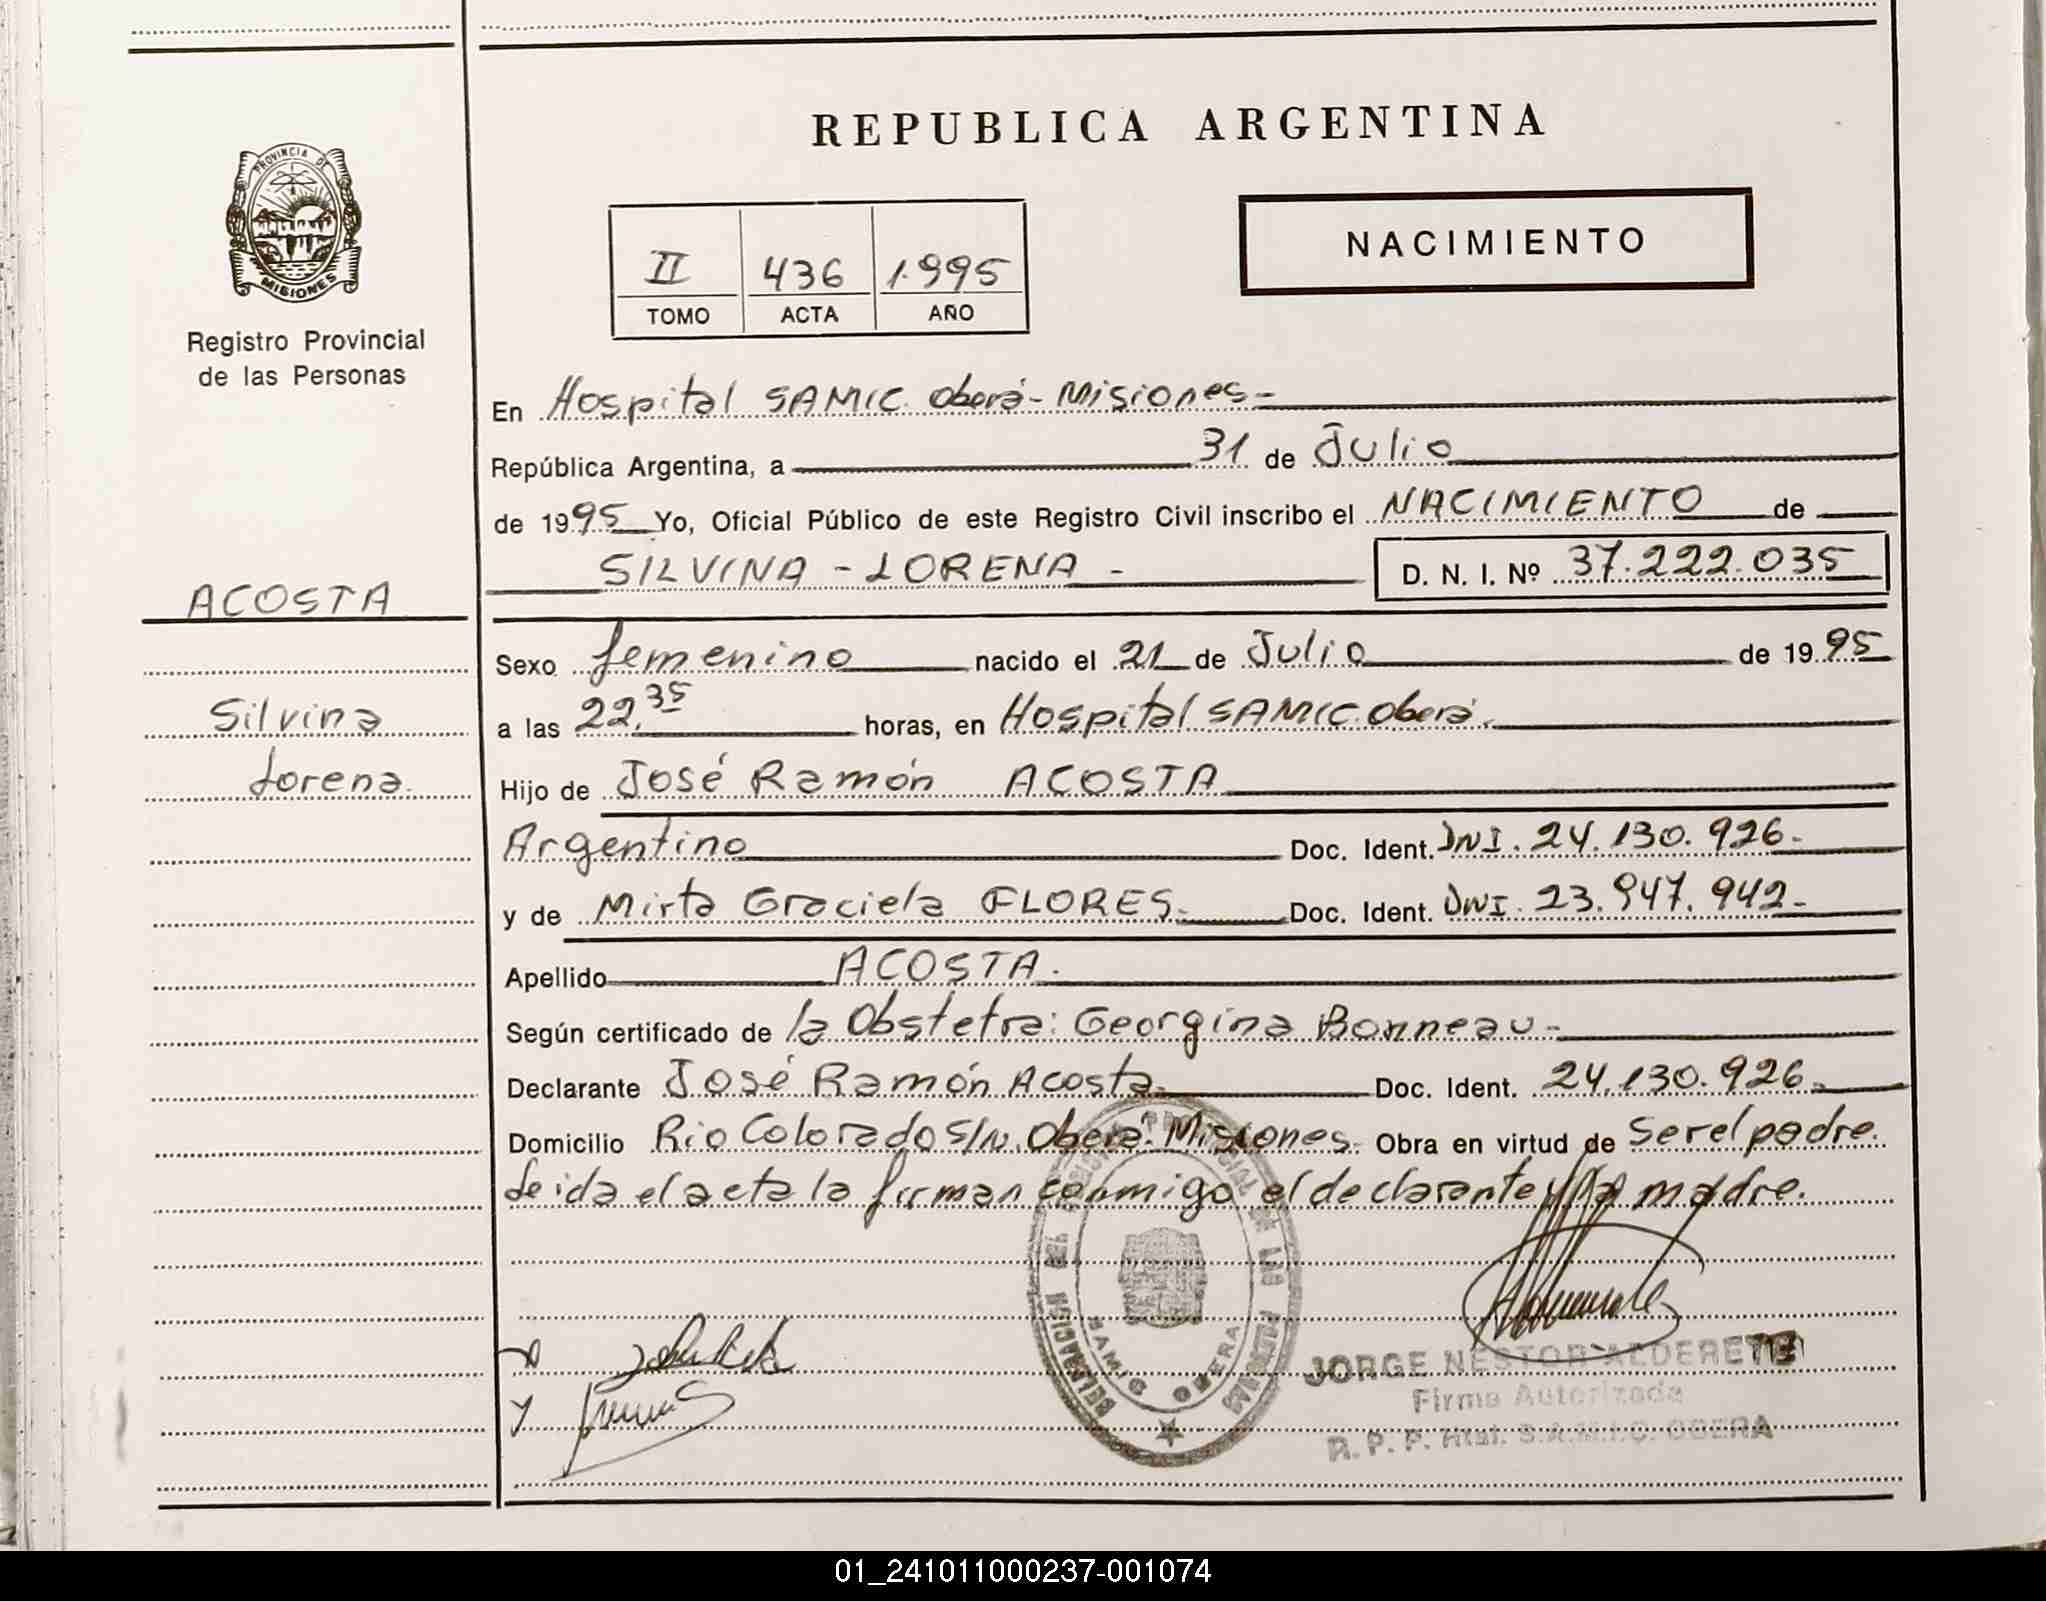 PROVINCIA DE
MISIONES
Registro Provincial
de las Personas
ACOSTA
Silvina
Lorena.
REPUBLICA ARGENTINA
II 436 1.995
TOMO ACTA AÑO
NACIMIENTO
En Hospital SAMIC. Oberá - Misiones -
República Argentina, a 31 de Julio
de 1995 Yo, Oficial Público de este Registro Civil inscribo el NACIMIENTO de
SILVINA - LORENA - D. N. I. Nº 37.222.035
Sexo femenino nacido el 21 de Julio de 1995
a las 22,35 horas, en Hospital SAMIC. Oberá.
Hijo de José Ramón ACOSTA
Argentino Doc. Ident. DNI. 24.130.926-
y de Mirta Graciela FLORES. Doc. Ident. DNI. 23.947.942-
Apellido ACOSTA.
Según certificado de la Obstetra: Georgina Bonneau-
Declarante José Ramón Acosta. Doc. Ident. 24.130.926.
Domicilio Rio Colorado S/N. Oberá. Misiones. Obra en virtud de Ser el padre.
Leida el acta la firman conmigo el declarante y la madre.
SAMIC OBERA
JORGE NESTOR ALDERETE
Firma Autorizada
R. P. P. Htal. S.A.M.I.C. OBERA
01_241011000237-001074